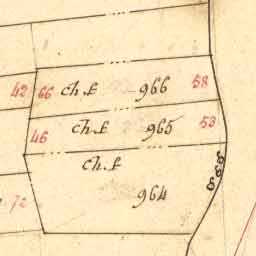 42 66 ch.£ 966 58
46 ch.£ 965 53
ch.£
72 964